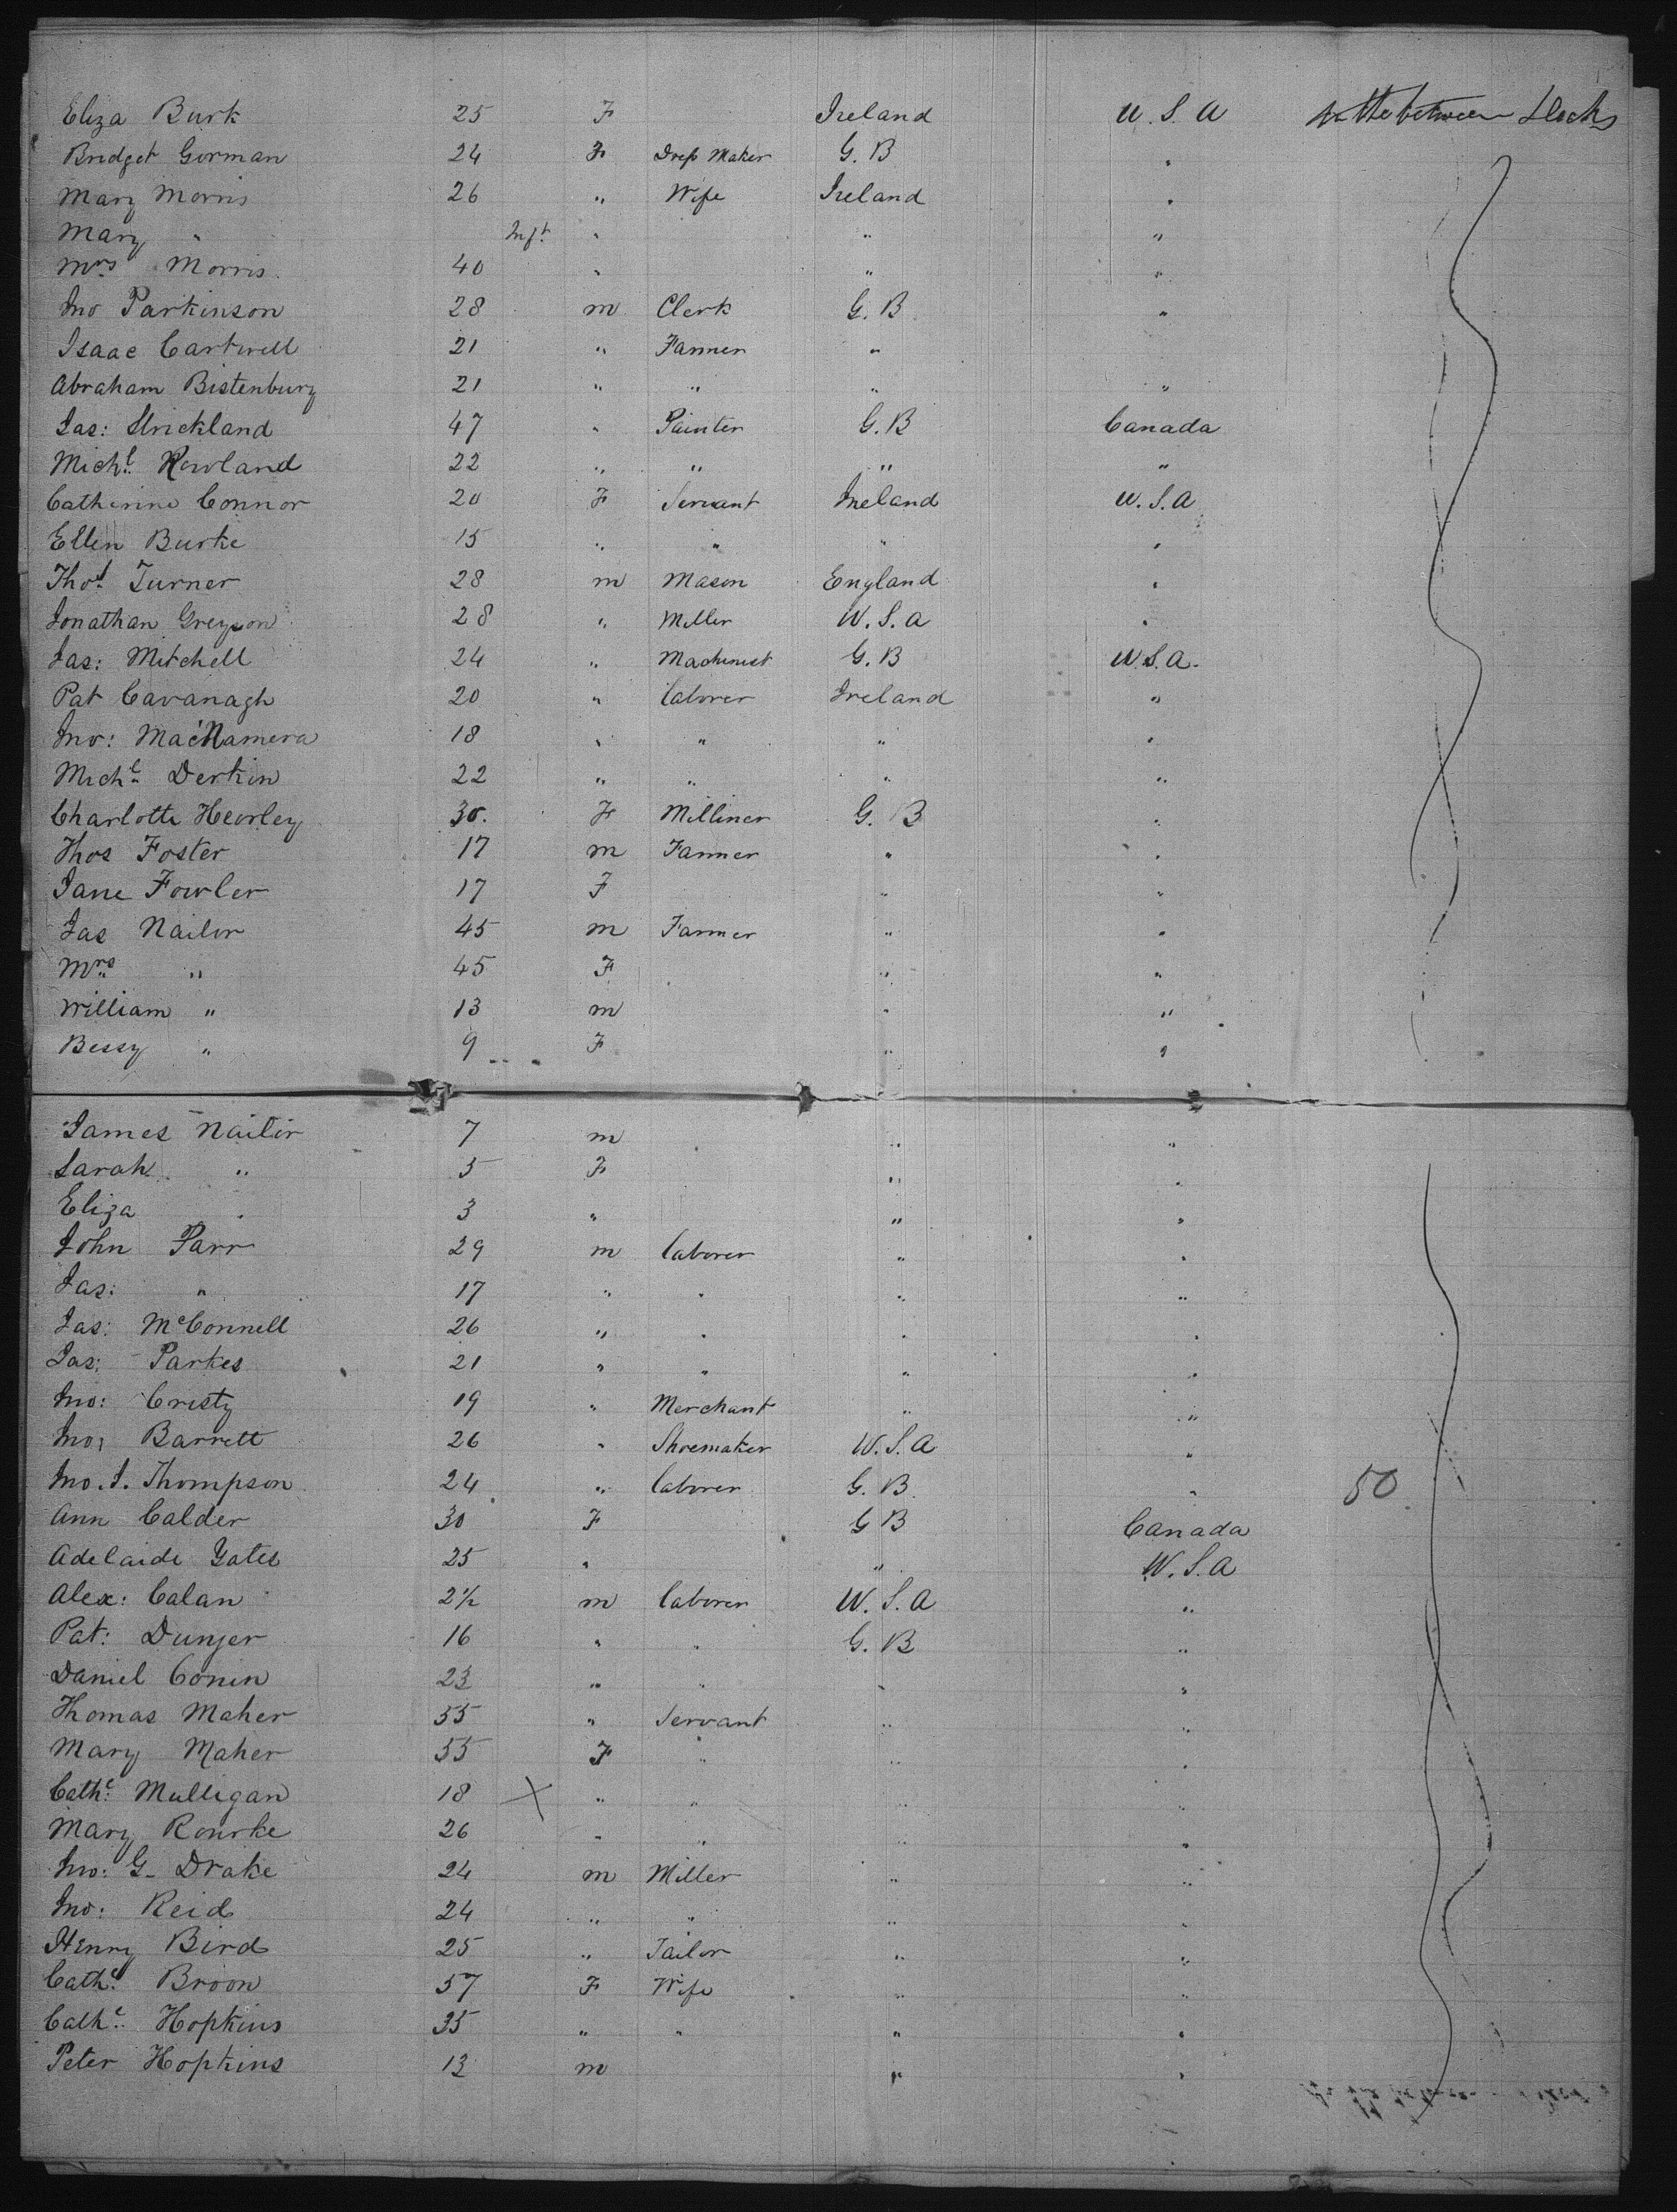 Eliza Burk 25 F Ireland U.S.A In the between Decks
Bridget Gorman 24 F Dress Maker G.B "
Mary Morris 26 " Wife Ireland "
Mary " Inft " " "
Mrs Morris 40 " " "
Jno Parkinson 28 m Clerk G.B "
Isaac Cartwell 21 " Farmer "
Abraham Bistenbury 21 " " " "
Jas: Strickland 47 " Painter G.B Canada
Michl Rowland 22 " " " "
Catherine Connor 20 F Servant Ireland U.S.A
Ellen Burke 15 " " " "
Thos Turner 28 m Mason England "
Jonathan Greyson 28 " Miller U.S.A "
Jas: Mitchell 24 " Machinist G.B U.S.A.
Pat Cavanagh 20 " laborer Ireland "
Jno: MacNamera 18 " " " "
Michl Derkin 22 " " " "
Charlotte Heorley 30. F Milliner G.B "
Thos Foster 17 m Farmer " "
Jane Fowler 17 F " "
Jas Nailor 45 m Farmer " "
Mrs " 45 F " "
William " 13 m " "
Bessy " 9 F " "
James Nailor 7 m " "
Sarah " 5 F " "
Eliza " 3 " " "
John Parr 29 m laborer " "
Jas: " 17 " " " "
Jas: McConnell 26 " " " "
Jas: Parkes 21 " " " "
Jno: Cristy 19 " Merchant " "
Jno: Barrett 26 " Shoemaker U.S.A "
Jno. J. Thompson 24 " laborer G.B. " 50
Ann Calder 30 F G B Canada
Adelaide Yates 25 " " U.S.A
Alex: Calan 2½ m laborer U.S.A "
Pat: Dunjer 16 " " G.B "
Daniel Conin 23 " " " "
Thomas Maher 55 " Servant " "
Mary Maher 55 F " " "
Cathe Mulligan 18 X " " " "
Mary Rourke 26 " " " "
Jno: G. Drake 24 m Miller " "
Jno: Reid 24 " " " "
Henry Bird 25 " Tailor " "
Cathe Broon 57 F Wife " "
Cathe Hopkins 35 " " " "
Peter Hopkins 13 m " "